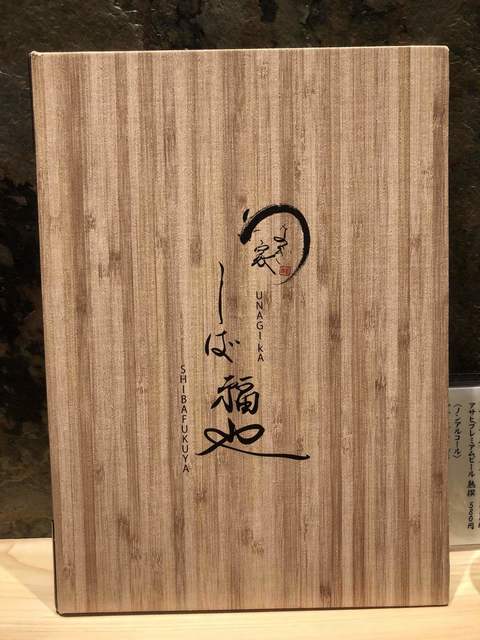 うなぎ家
UNAGI KA
しば福也
SHIBAFUKUYA
(ノンアルコール)
アサヒプレミアムビール 熟撰 580円